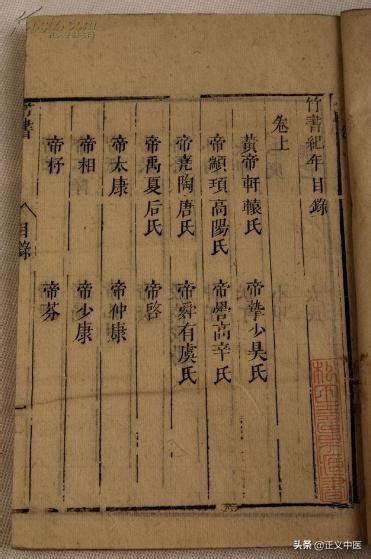 竹書紀年目錄
卷上
黃帝軒轅氏 帝摯少昊氏
帝顓頊高陽氏 帝嚳高辛氏
帝堯陶唐氏 帝舜有虞氏
帝禹夏后氏 帝啓
帝太康 帝仲康
帝相 帝少康
帝杼 帝芬
目錄
头条 @正义中医